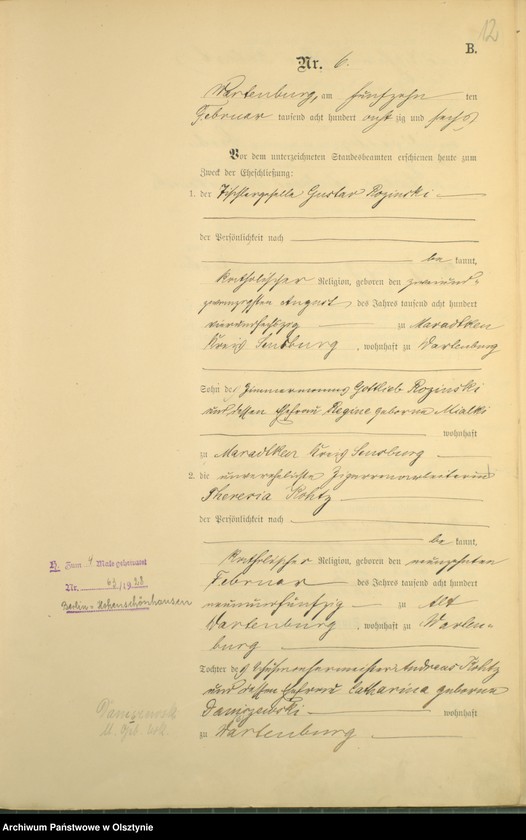 12
B.
Nr. 6.
Wartenburg, am fünfzehn ten
Februar tausend acht hundert acht zig und sechs
Vor dem unterzeichneten Standesbeamten erschienen heute zum
Zweck der Eheschließung:
1. der Tischlergeselle Gustav Rozinski
der Persönlichkeit nach
be kannt,
katholischer Religion, geboren den zweiund-
zwanzigsten August des Jahres tausend acht hundert
vierundsechszig zu Maradtken
Kreis Sensburg, wohnhaft zu Wartenburg
Sohn des Zimmermanns Gottlieb Rozinski
und dessen Ehefrau Regine geborne Mialki
wohnhaft
zu Maradtken Kreis Sensburg
2. die unverehelichte Zigarrenarbeiterin
Theresia Kohtz
der Persönlichkeit nach
be kannt,
katholischer Religion, geboren den neunzehnten
Februar des Jahres tausend acht hundert
neunundfünfzig zu Alt
Wartenburg, wohnhaft zu Warten-
burg
Tochter des Schuhmachermeisters Andreas Kohtz
und dessen Ehefrau Catharina geborne
Daniszewski wohnhaft
zu Wartenburg
H. Zum Male geheiratet
Nr.
Berlin-Hohenschönhausen
Archiwum Państwowe w Olsztynie